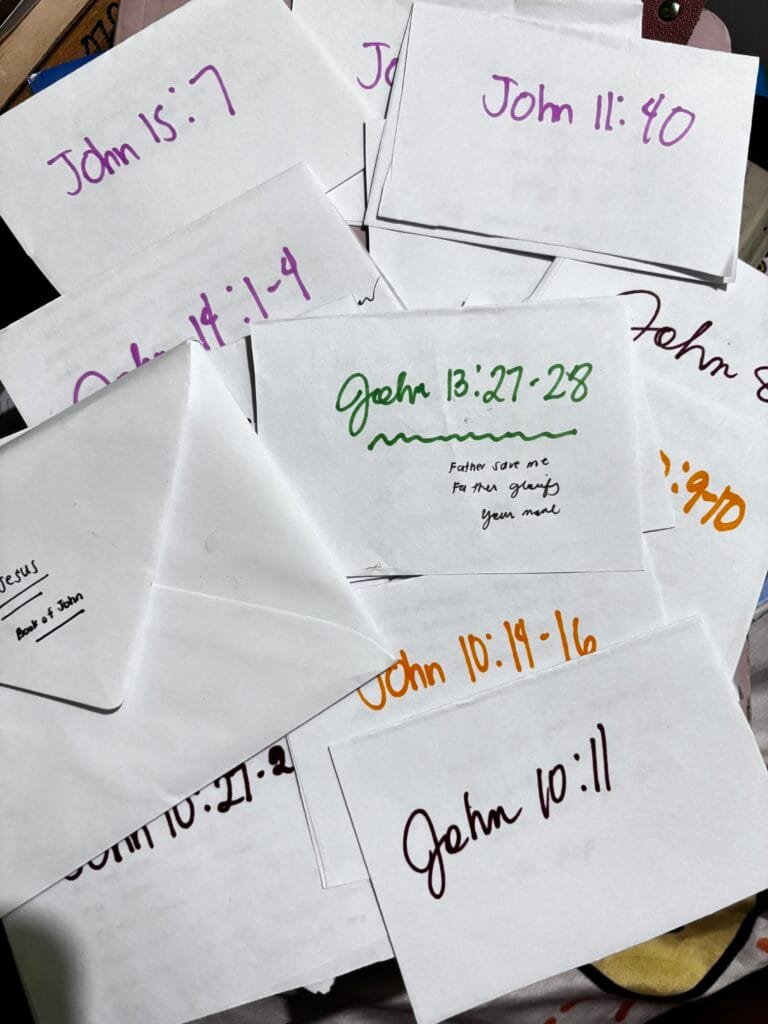 John 15:7
Jo
John 11:40
John 14:1-4
John 8
John 13:27-28
Father save me
Father glorify
Your name
:9-10
Jesus
Book of John
John 10:14-16
John 10:27-2
John 10:11